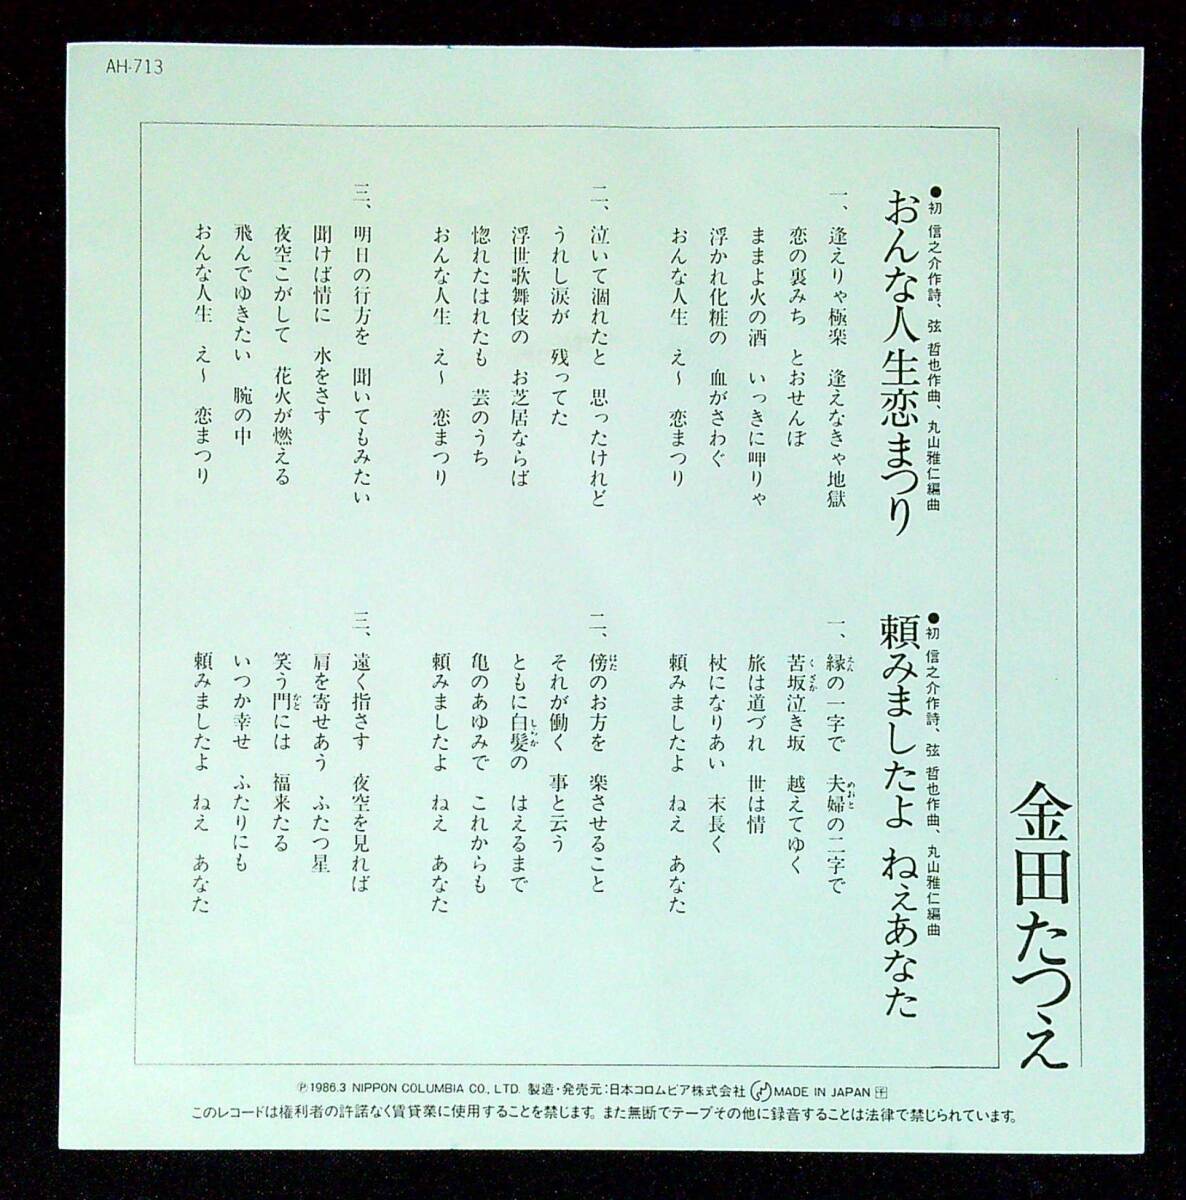 AH-713
金田たつえ
●初 信之介作詩、弦 哲也作曲、丸山雅仁編曲
おんな人生恋まつり
一、逢えりゃ極楽 逢えなきゃ地獄
恋の裏みち とおせんぼ
ままよ火の酒 いっきに呷りゃ
浮かれ化粧の 血がさわぐ
おんな人生 え〜 恋まつり
二、泣いて涸れたと 思ったけれど
うれし涙が 残ってた
浮世歌舞伎の お芝居ならば
惚れたはれたも 芸のうち
おんな人生 え〜 恋まつり
三、明日の行方を 聞いてもみたい
聞けば情に 水をさす
夜空こがして 花火が燃える
飛んでゆきたい 腕の中
おんな人生 え〜 恋まつり
●初 信之介作詩、弦 哲也作曲、丸山雅仁編曲
頼みましたよ ねぇあなた
一、縁の一字で 夫婦の二字で
えん めおと
苦坂泣き坂 越えてゆく
くざか
旅は道づれ 世は情
杖になりあい 末長く
頼みましたよ ねえ あなた
二、傍のお方を 楽させること
はた
それが働く 事と云う
ともに白髪の はえるまで
しらが
亀のあゆみで これからも
頼みましたよ ねえ あなた
三、遠く指さす 夜空を見れば
肩を寄せあう ふたつ星
笑う門には 福来たる
かど
いつか幸せ ふたりにも
頼みましたよ ねえ あなた
℗1986.3 NIPPON COLUMBIA CO., LTD. 製造・発売元:日本コロムビア株式会社 MADE IN JAPAN
このレコードは権利者の許諾なく賃貸業に使用することを禁じます。また無断でテープその他に録音することは法律で禁じられています。